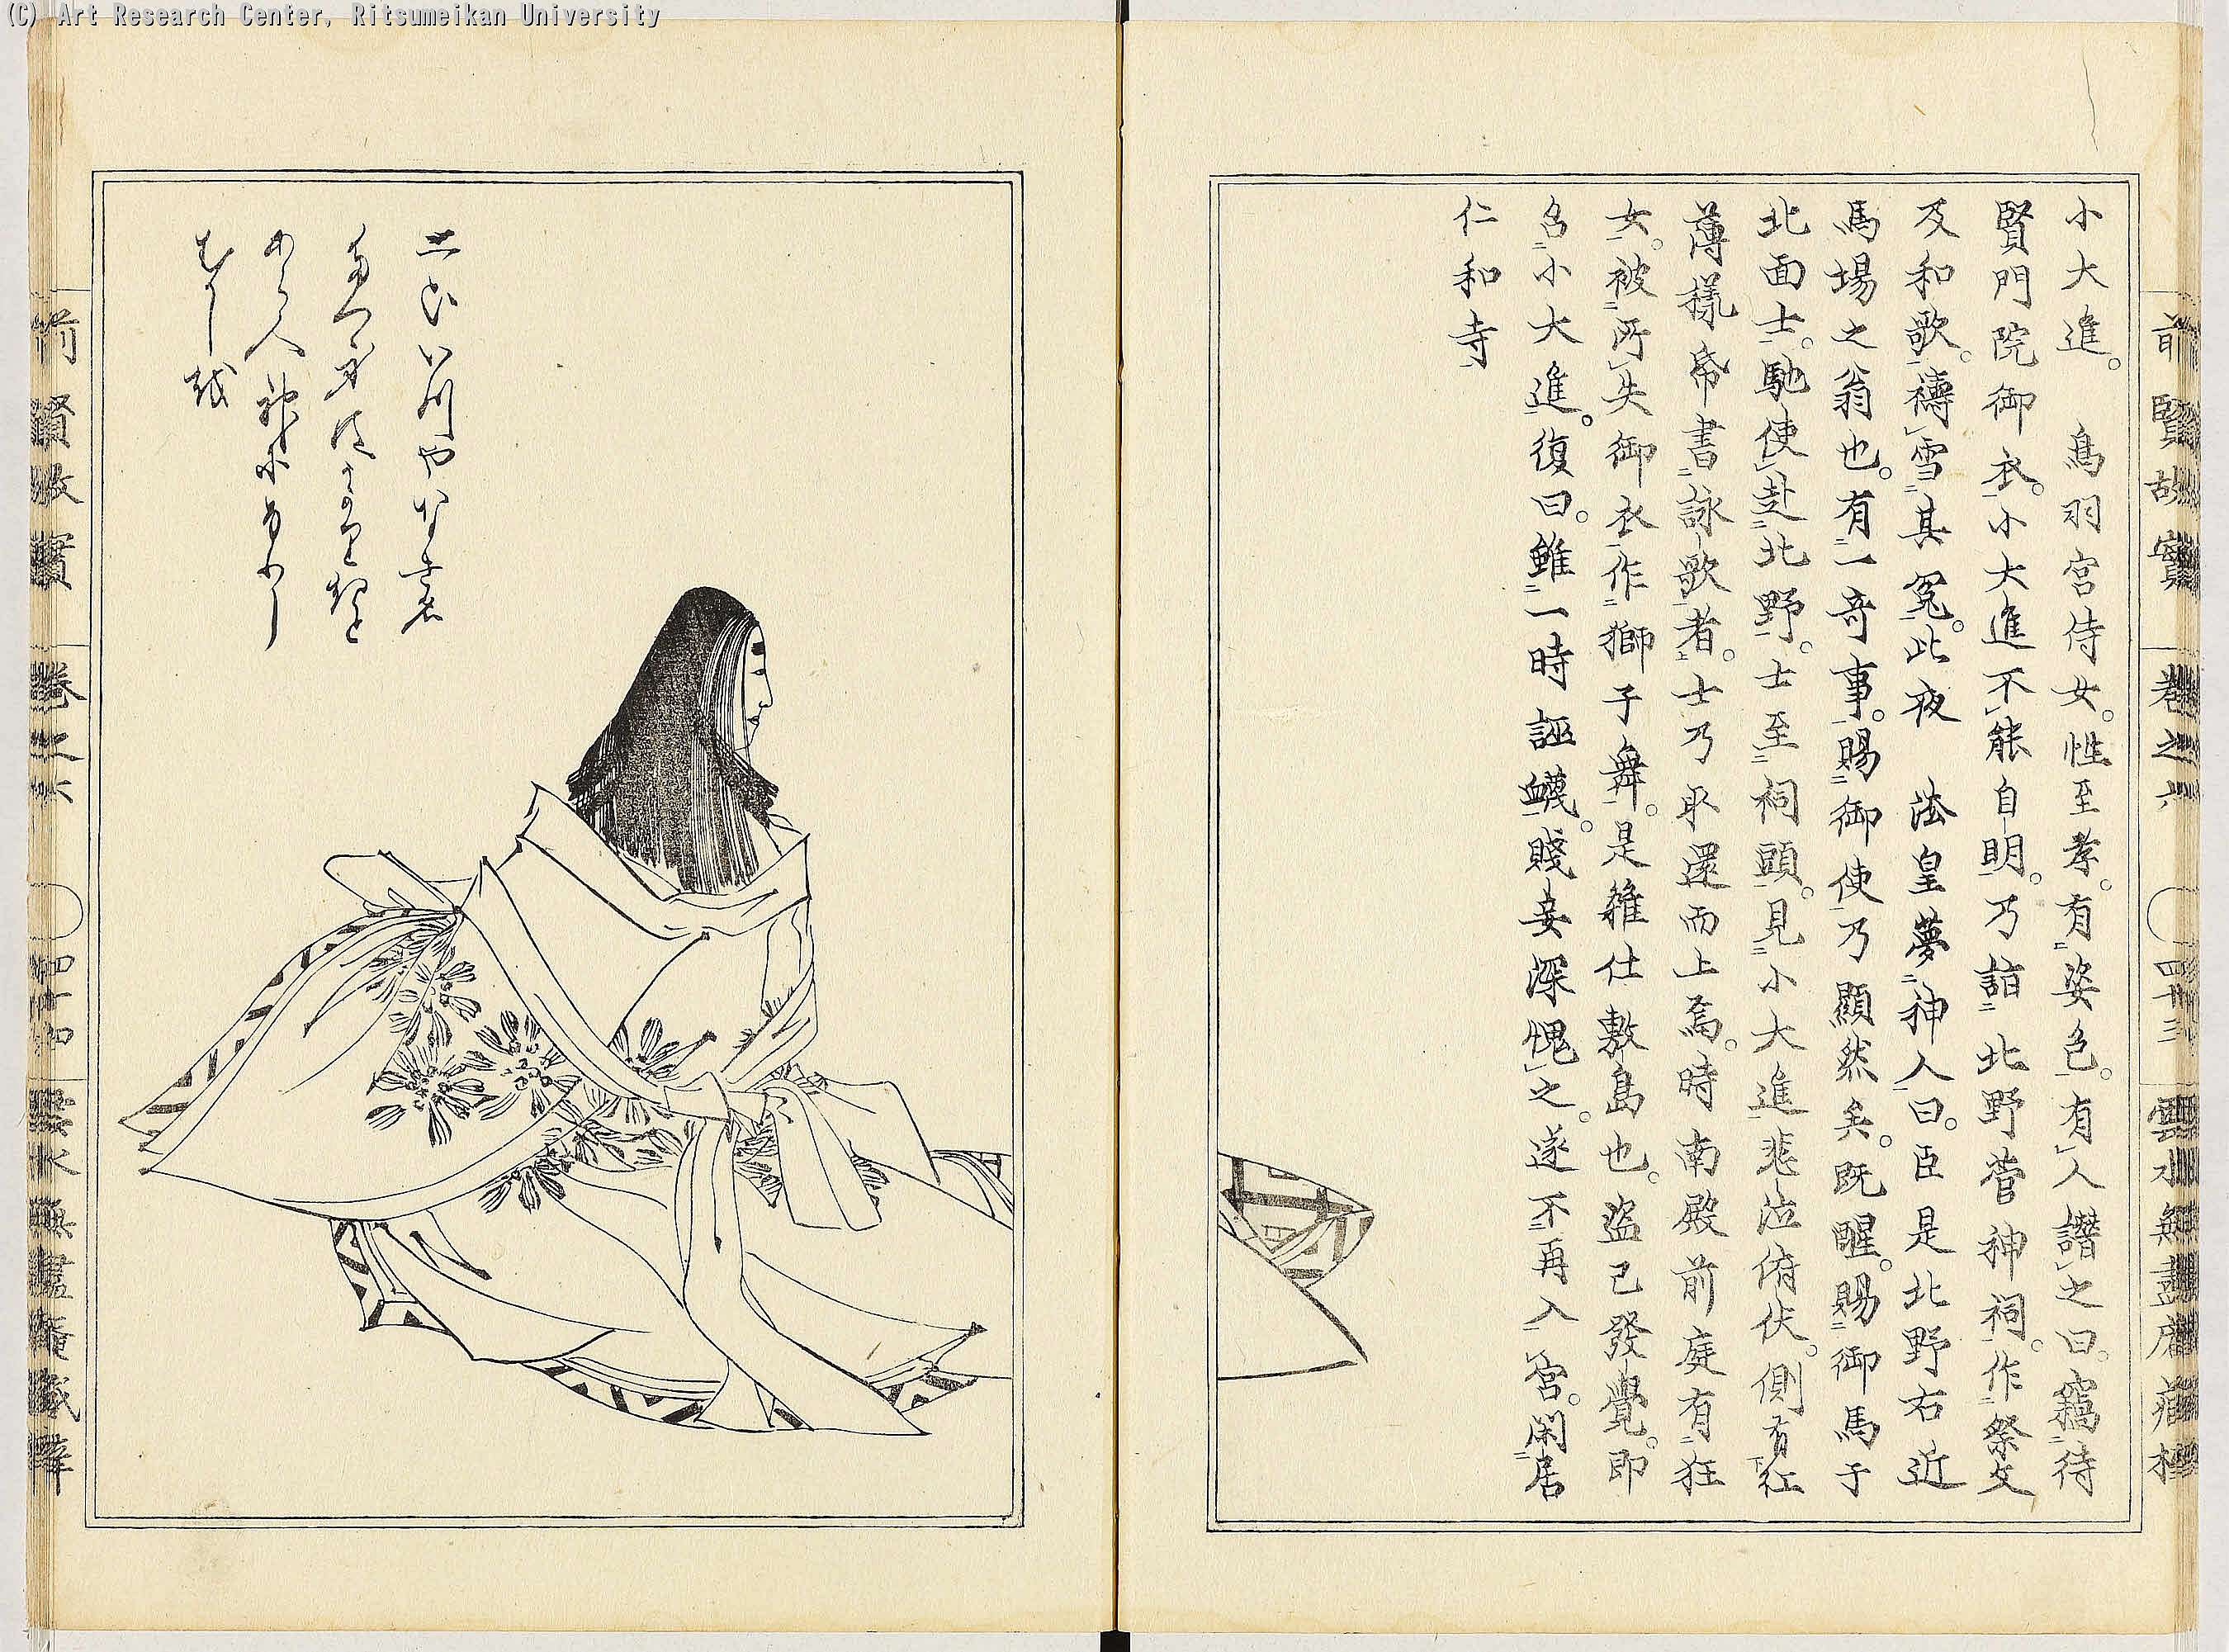 (C) Art Research Center, Ritsumeikan University
前賢故實 卷之六 四十三 雲水無盡庵藏梓
小大進。 鳥羽宮侍女。性至孝。有姿色。有人譖之曰。竊待
賢門院御衣。小大進不能自明。乃詣北野菅神祠。作祭文
及和歌。禱雪其冤。此夜 法皇夢神人曰。臣是北野右近
馬場之翁也。有一奇事。賜御使乃顯然矣。既醒。賜御馬于
北面士。馳使赴北野。士至祠頭。見小大進悲泣俯伏。側有紅
薄樣帋書詠歌者。士乃取還而上焉。時南殿前庭有狂
女。被所失御衣作獅子舞。是雜仕敷島也。盜已發覺。即
召小大進。復曰。雖一時誣衊。賤妾深愧之。遂不再入宮。閑居
仁和寺
おもひいつやなき名
たつ身はうかりきと
あら人神になりし
むかし越
前賢故實 卷之六 四十四 雲水無盡庵藏梓